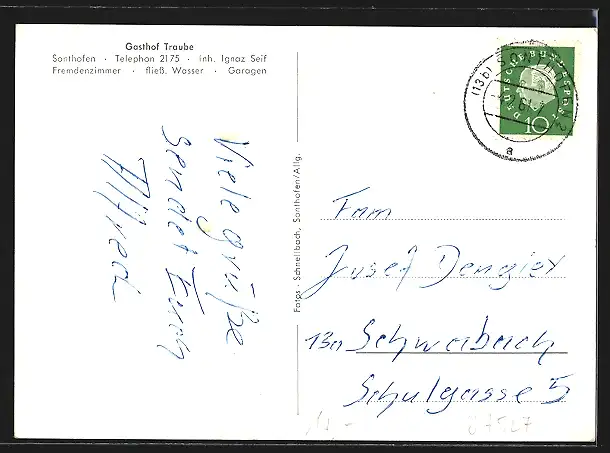 Gasthof Traube
Sonthofen · Telephon 2175 · inh. Ignaz Seif
Fremdenzimmer · fließ. Wasser · Garagen
Viele grüße
sendet Euch
Alfred
Fotos - Schnellbach, Sonthofen/Allg.
(13b) SONTHOFEN 2
a
DEUTSCHE BUNDESPOST
10
Fam
Josef Dengler
13a Schwabach
Schulgasse 5